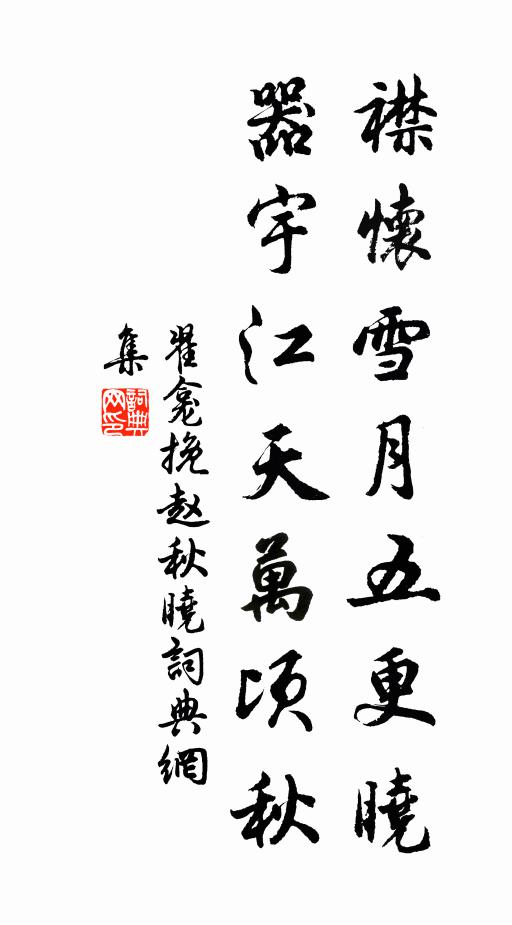 襟懷雪月五更曉
器宇江天萬頃秋
翟龛挽赵秋曉詞典網
集
詞典
网印